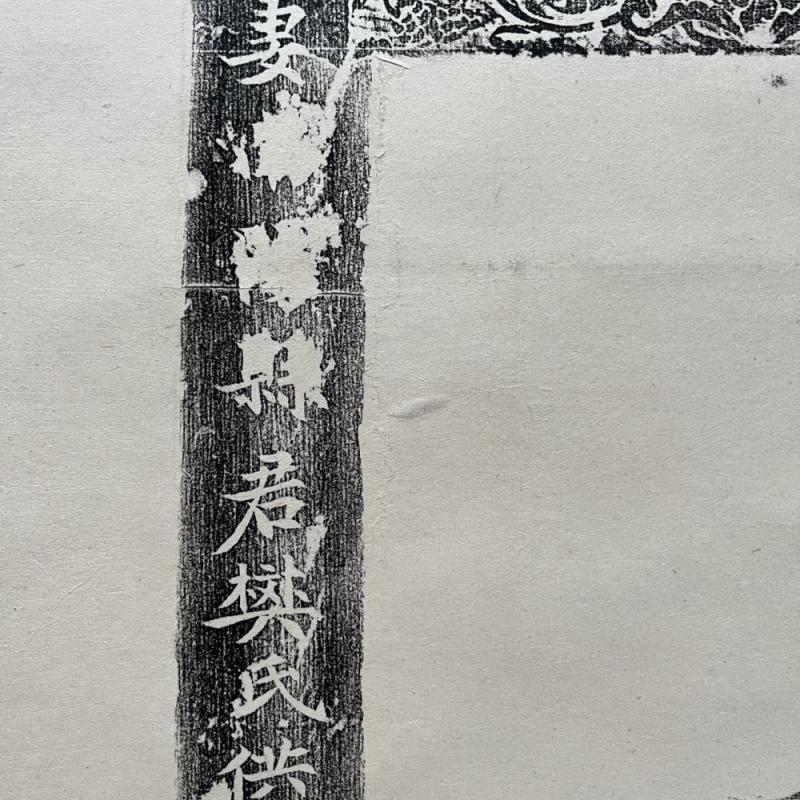 妻縣君樊氏供